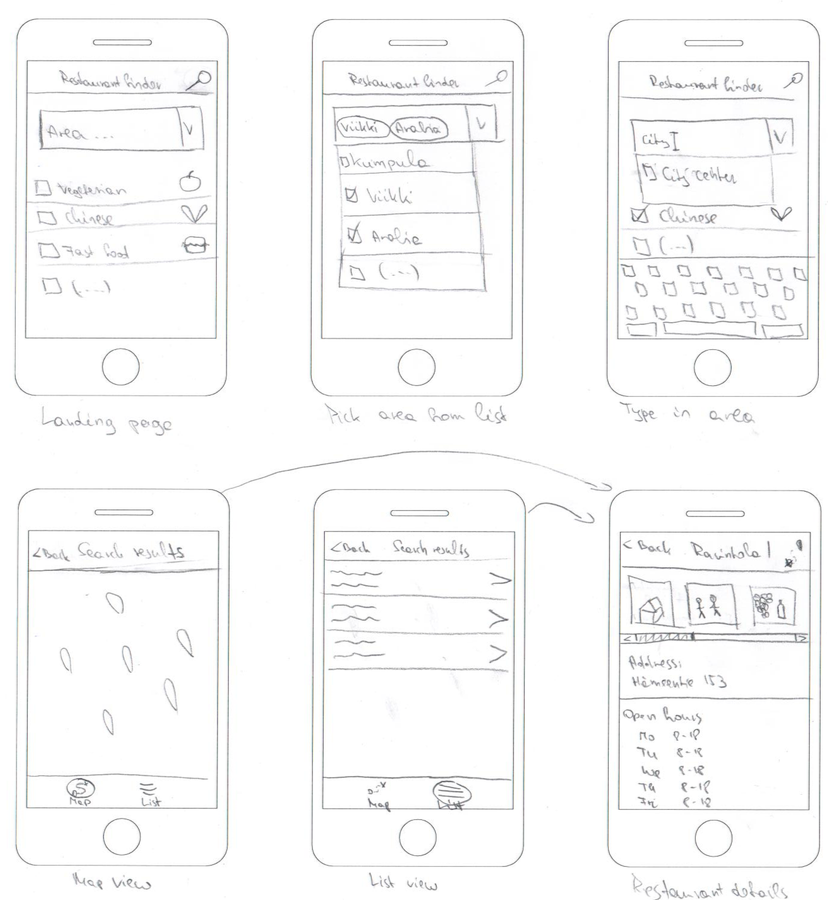 Restaurant finder
Area ...
Vegetarian
Chinese
Fast food
(...)
Landing page
Restaurant finder
Viikki Arabia
Kumpula
Viikki
Arabia
(...)
Pick area from list
Restaurant finder
City
City center
Chinese
(...)
Type in area
<Back Search results
Map List
Map view
<Back Search results
Map List
List view
<Back Ravintola 1
Address:
Hämeentie 153
Open hours
Mo 8-18
Tu 8-18
We 8-18
Th 8-18
Fri 8-18
Restaurant details